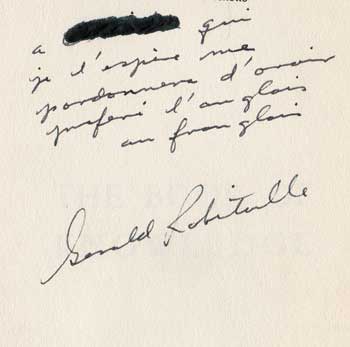 a qui
je l'espère me
pardonnera d'avoir
préféré l'anglais
au franglais
Gerald Robitaille